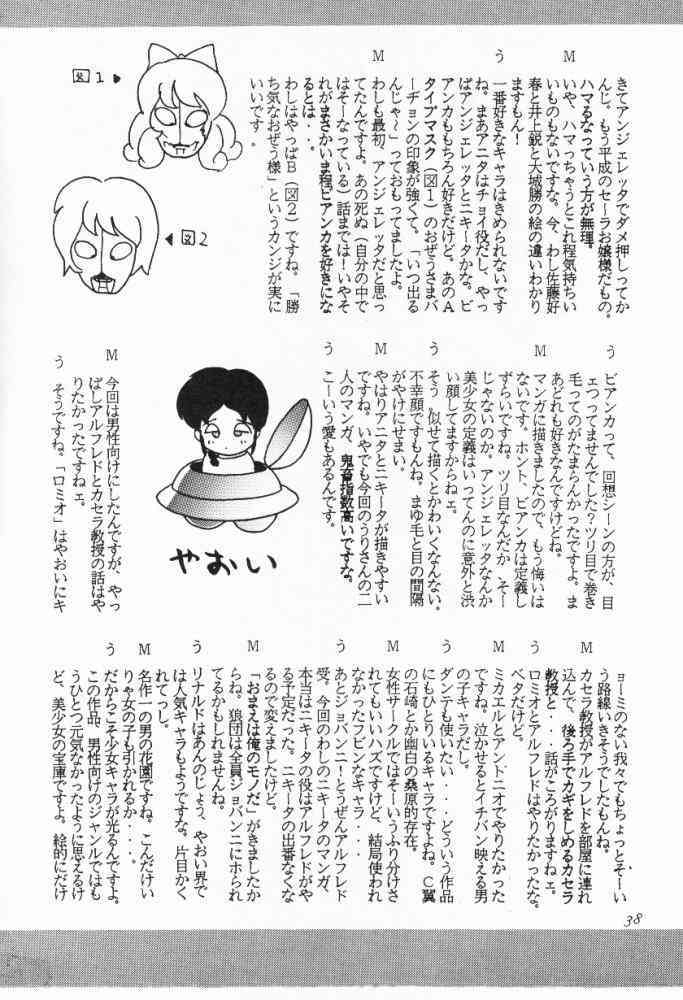 きてアンジェレッタでダメ押しってか
んじ。もう平成のセーラお嬢様だもの。
ハマるなっていう方が無理。
M
いや、ハマっちゃうとこれ程気持ちい
いものもないですな。今、わし佐藤好
春と井上鋭と大城勝の絵の違いわかり
ますもん！
う
一番好きなキャラはきめられないです
ね。まあアニタはチョイ役だし、やっ
ぱアンジェレッタとニキータかな。ビ
アンカももちろん好きだけど。あのA
タイプマスク（図1）のおぜうさまバ
ーチョンの印象が強くて。「いつ出る
んじゃ～」っておもってましたよ。
M
わしも最初、アンジェレッタだと思っ
てたんですよ。あの死ぬ（自分の中で
はそーなっている）話までは！いやそ
れがまさかいま程ビアンカを好きにな
るとは・・・。
わしはやっぱB（図2）ですね。「勝
ち気なおぜう様」というカンジが実に
いいです。
図1
図2
う
ビアンカって、回想シーンの方が、目
ェつってませんでした？ツリ目で巻き
毛ってのがたまらんかったですよ。ま
あどれも好きなんですけどね。
M
マンガに描きましたので、もう悔いは
ないです。ホント、ビアンカは定義し
ずらいですね。ツリ目なんだか、そー
じゃないのか。アンジェレッタなんか
美少女の定義はいってんのに意外と渋
い顔してますからねェ。
う
そう。似せて描くとかわいくなんない。
不幸顔ですもんね。まゆ毛と目の間隔
がやけにせまい。
M
やはりアニタとニキータが描きやすい
ですね。いやでも今回のうりさんの二
人のマンガ、鬼畜指数高いですな。
う
こーいう愛もあるんです。
やおい
M
今回は男性向けにしたんですが、やっ
ぱしアルフレドとカセラ教授の話はや
りたかったですねェ。
う
そうですね。「ロミオ」はやおいにキ
ョーミのない我々でもちょっとそーい
う路線いきそうでしたもんね。
M
カセラ教授がアルフレドを部屋に連れ
込んで、後ろ手でカギをしめるカセラ
教授と・・話がころがりますねェ。
う
ロミオとアルフレドはやりたかったな。
ベタだけど。
M
ミカエルとアントニオでやりたかった
ですね。泣かせるとイチバン映える男
の子キャラだし。
う
ダンテも使いたい・・どういう作品
にもひとりいるキャラですよね。C翼
の石崎とか幽白の桑原的存在。
M
女性サークルではそーいうふり分けさ
れてもいいハズですけど、結局使われ
なかったフビンなキャラ・・・
う
あとジョバンニ！とうぜんアルフレド
受。今回のわしのニキータのマンガ、
本当はニキータの役はアルフレドがや
る予定だった。ニキータの出番なくな
るので変えましたけど。
M
「おまえは俺のモノだ」がきましたか
らね。狼団は全員ジョバンニにホられ
てるかもしれませんね。
う
リナルドはあんのじょう、やおい界で
は人気キャラもようですな。片目かく
れてっし。
M
名作一の男の花園ですね。こんだけい
りゃ女の子も引かれるか・・・。
う
だからこそ少女キャラが光るんですよ。
この作品、男性向けのジャンルではも
うひとつ元気なかったように思えるけ
ど、美少女の宝庫ですよ。絵的にだけ
38